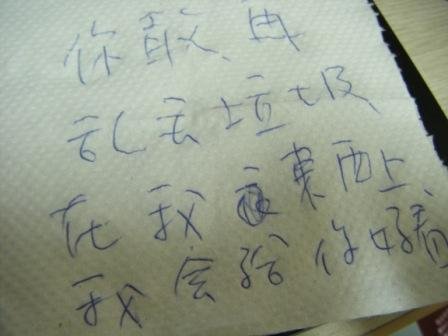 你敢再
乱丢垃圾
在我東西上、
我会给你好看